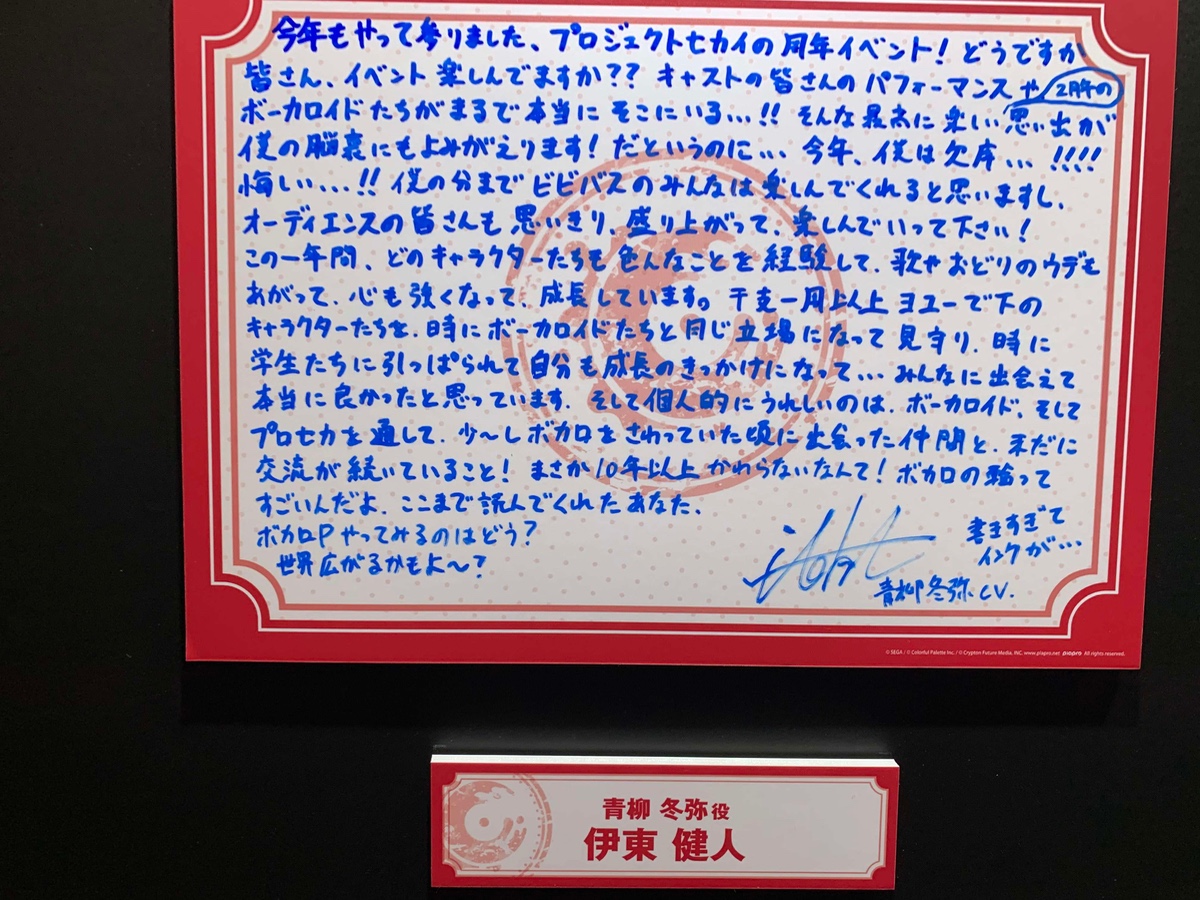 今年もやって参りました、プロジェクトセカイの周年イベント!どうですか
皆さん、イベント楽しんでますか?? キャストの皆さんのパフォーマンスや
2周年の
ボーカロイドたちがまるで本当にそこにいる…!! そんな最高に楽しい思い出が
僕の脳裏にもよみがえります!だというのに… 今年、僕は欠席…!!!!
悔しい…!! 僕の分までビビバスのみんなは楽しんでくれると思いますし、
オーディエンスの皆さんも思いきり、盛り上がって、楽しんでいって下さい!
この一年間、どのキャラクターたちも色んなことを経験して、歌やおどりのウデも
あがって、心も強くなって、成長しています。干支一周以上ヨユーで下の
キャラクターたちを、時にボーカロイドたちと同じ立場になって見守り、時に
学生たちに引っぱられて自分も成長のきっかけになって… みんなに出会えて
本当に良かったと思っています。そして個人的にうれしいのは、ボーカロイド、そして
プロセカを通して、少〜しボカロをさわっていた頃に出会った仲間と、未だに
交流が続いていること! まさか10年以上かわらないなんて!ボカロの輪って
すごいんだよ、ここまで読んでくれたあなた、
ボカロPやってみるのはどう?
世界広がるかもよ〜?
書きすぎて
インクが…
青柳冬弥、CV.
© SEGA / © Colorful Palette Inc. / © Crypton Future Media, INC. www.piapro.net piapro All rights reserved.
青柳 冬弥 役
伊東 健人